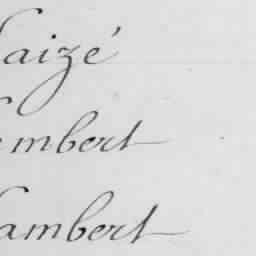 aizé
embert
ambert